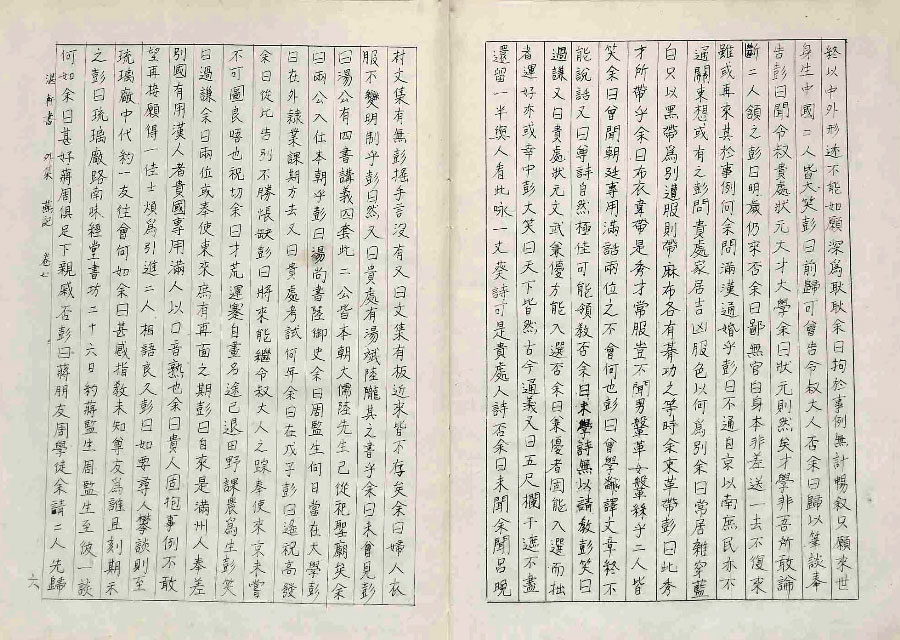 終以中外形迹不能如願深爲耿耿余曰拘於事例無計暢叙只願來世
身生中國二人皆大笑彭曰前歸可曾告令叔大人否余曰歸以筆談奉
告彭曰聞令叔貴處狀元大才大學余曰狀元則然矣才學非吾所敢論
斷二人頷之彭曰明歲仍來否余曰鄙無官白身本非差送一去不復來
雖或再來其於事例何余問滿漢通婚乎彭曰不通自京以南庶民亦不
通關東想或有之彭問貴處家居吉凶服色以何爲別余曰常居雜穿藍
白只以黑帶爲別遭服則帶麻布各有朞功之等時余束革帶彭曰此秀
才所帶乎余曰布衣韋帶是秀才常服豈不聞男鞶革女鞶絲乎二人皆
笑余曰曾聞朝廷專用滿話兩位之不會何也彭曰曾學飜譯文章終不
能說話又曰尊詩自然極佳可能頒敎否余曰未學詩無以請敎彭笑曰
過謙又曰貴處狀元文武兼優方能入選否余曰兼優者固能入選而拙
者運好亦或幸中彭大笑曰天下皆然古今通義又曰五尺欄干遮不盡
還留一半與人看此咏一丈葵詩可是貴處人詩否余曰未聞余聞呂晚
村文集有無彭搖手言沒有又曰文集有板近來皆不存矣余曰婦人衣
服不變明制乎彭曰然又曰貴處有湯斌陸隴其之書乎余曰未曾見彭
曰湯公有四書講義四套此二公皆本朝大儒陸先生已從祀聖廟矣余
曰兩公入仕本朝乎彭曰湯尚書陸御史余曰周監生何日當在太學彭
曰在外隷業課期方去又曰貴處考試何年余曰在戊子彭曰遙祝高發
余曰從此告別不勝悵缺彭曰將來能繼令叔大人之踪奉使來京未嘗
不可圖良唔也祝切余曰才荒運蹇自畫名途已退田野課農爲生彭笑
曰過謙余曰兩位或奉使東來庶有再面之期彭曰自來是滿州人奉差
別國有用漢人者貴國專用滿人以口音熟也余曰貴人固抱事例不敢
望再接願得一佳士煩爲引進二人相語良久彭曰如要尋人攀談則至
琉璃廠中代約一友住會何如余曰甚感指敎未知尊友爲誰且刻期禾
之彭曰琉璃廠路南味經堂書坊二十六日約蔣監生周監生至彼一談
何如余曰甚好蔣周俱足下親戚否彭曰蔣朋友周學徒余請二人先歸
湛軒書 外集 燕記 卷七
六